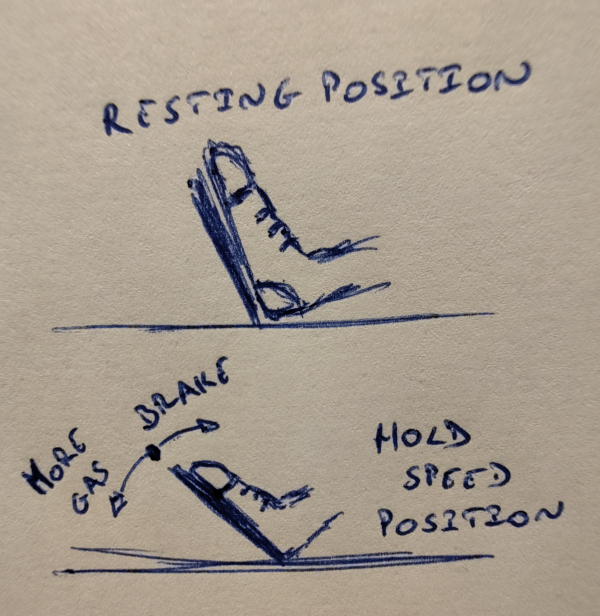 RESTING POSITION
BRAKE
MORE
GAS
HOLD
SPEED
POSITION